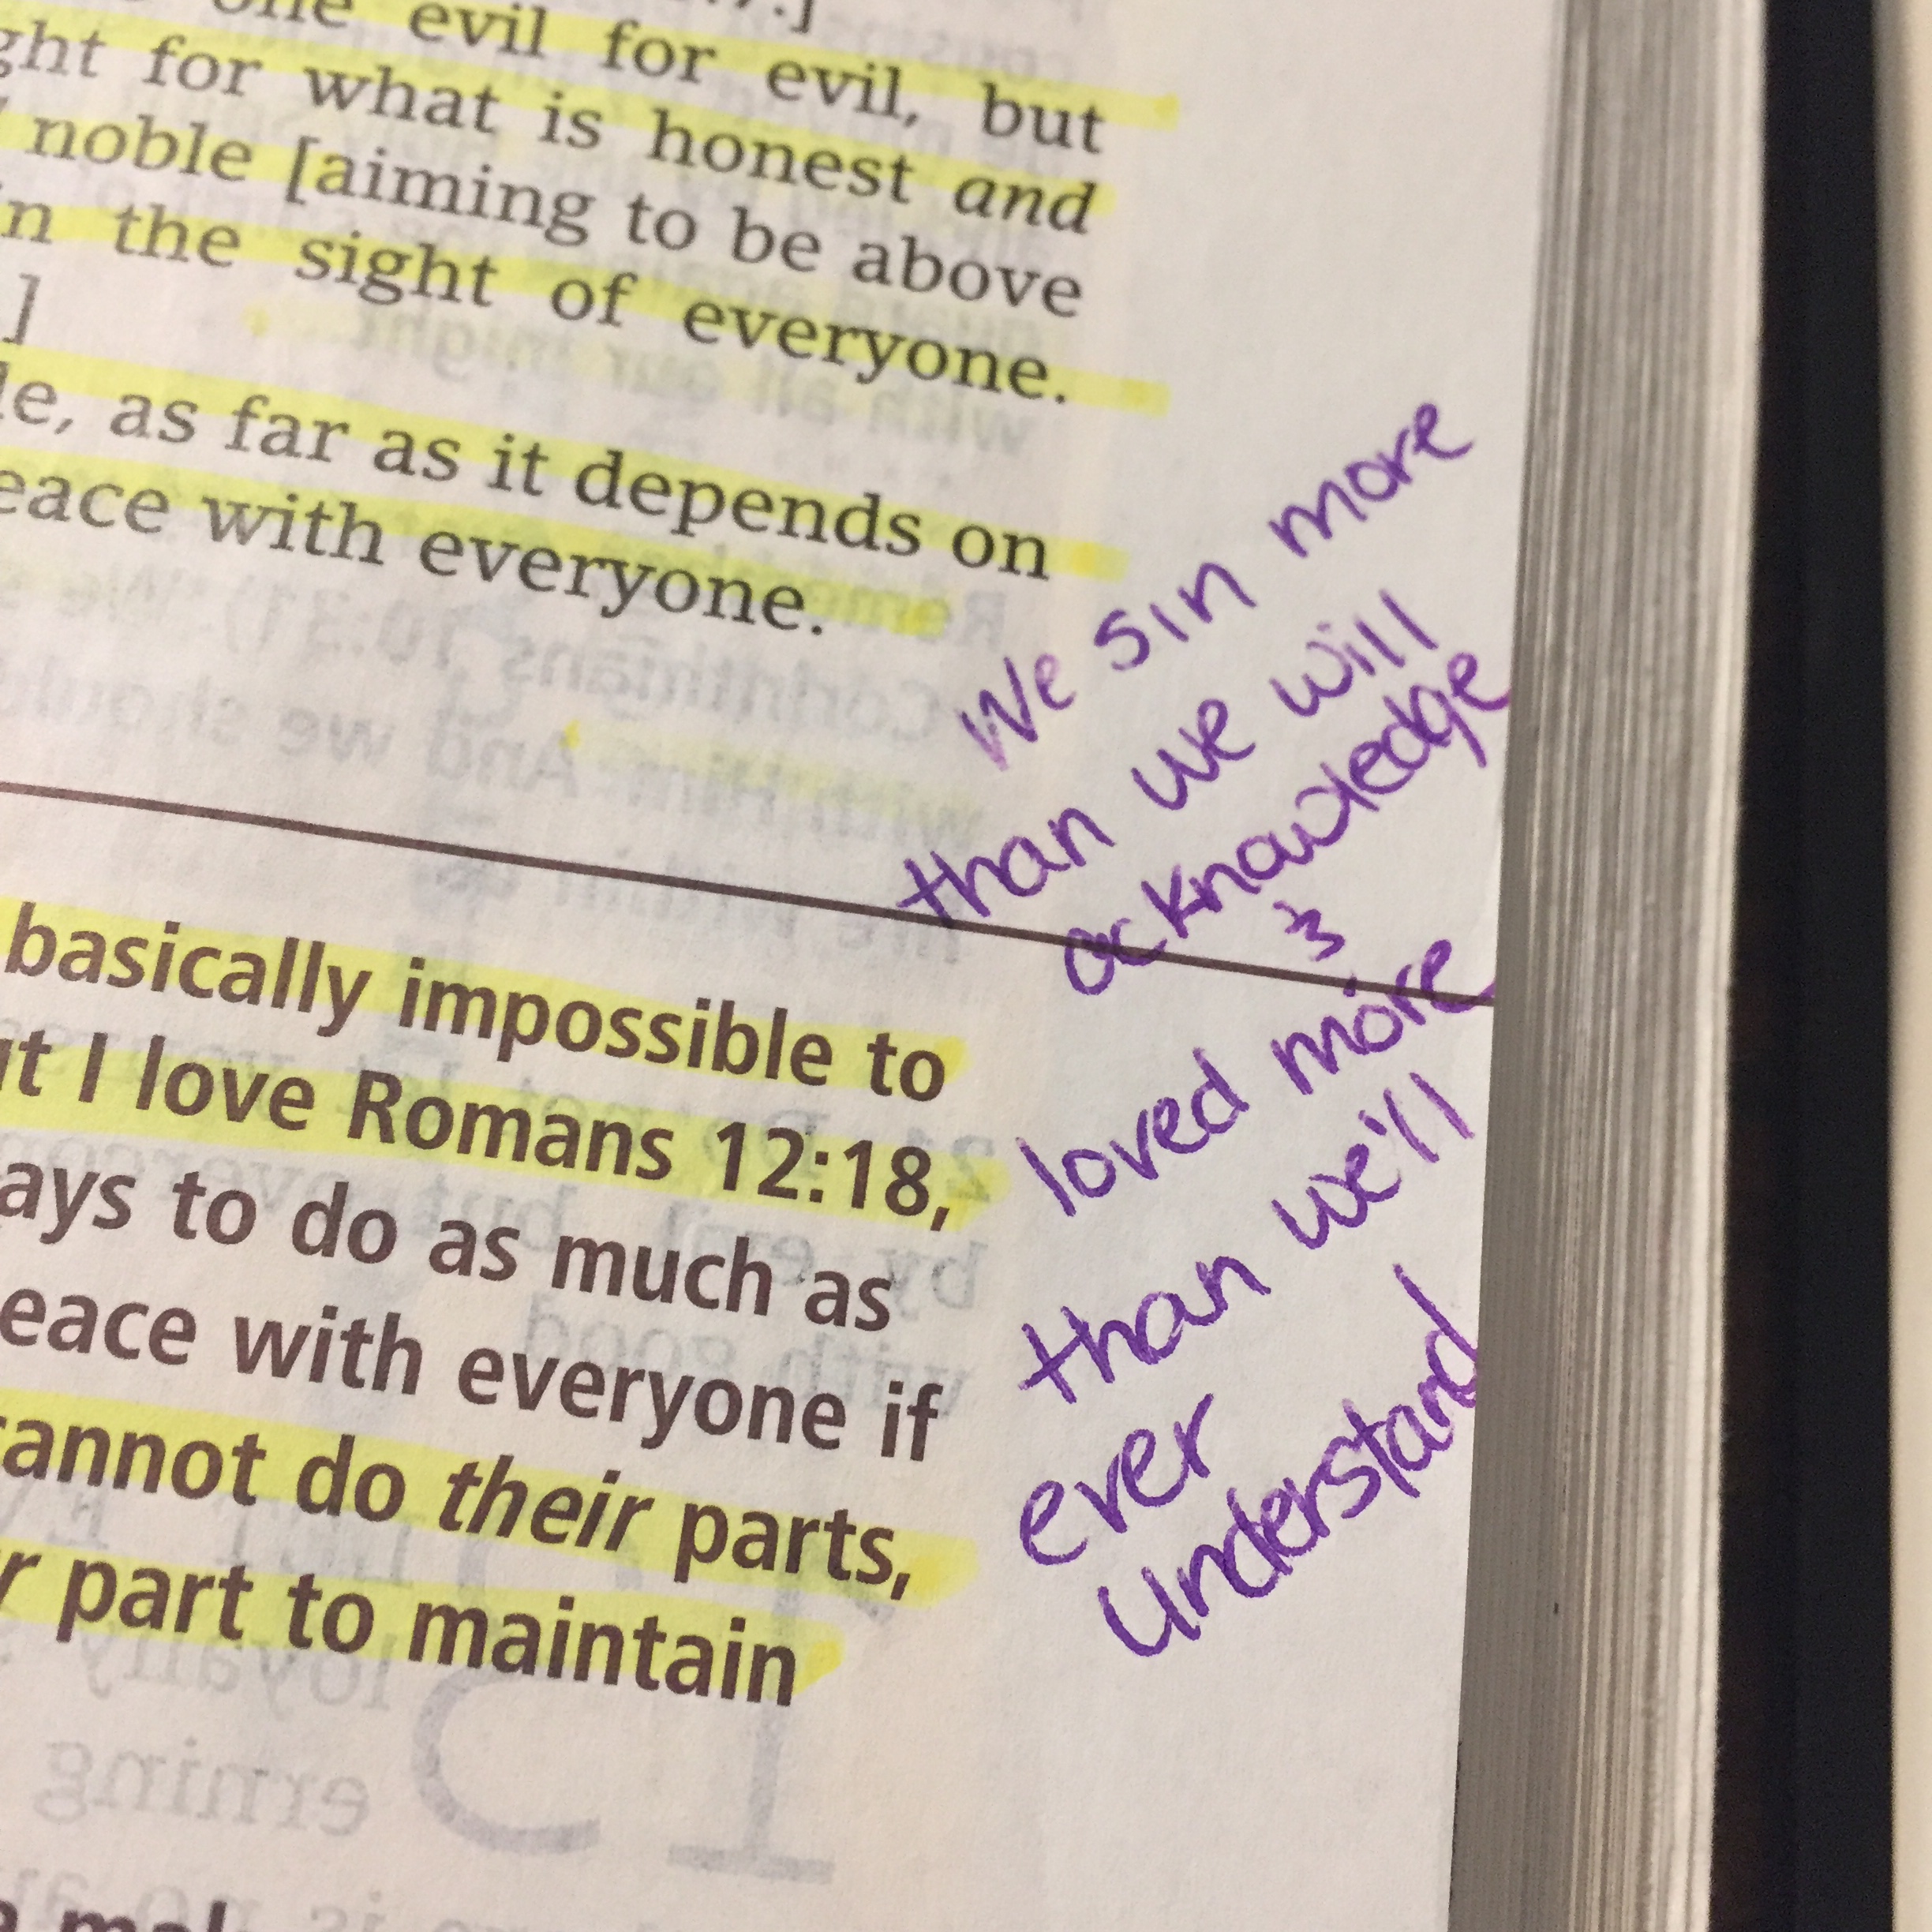 one evil for evil, but
ght for what is honest and
noble [aiming to be above
in the sight of everyone.
.]
le, as far as it depends on
eace with everyone.
We sin more
than we will
acknowledge
&
loved more
than we'll
ever
understand
basically impossible to
ut I love Romans 12:18,
ays to do as much as
eace with everyone if
cannot do their parts,
r part to maintain